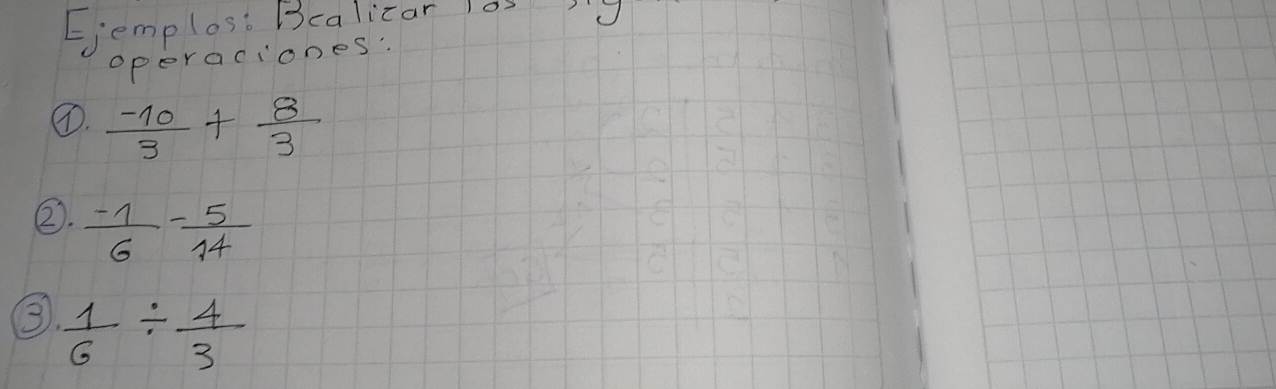 Ejemplos: Realizar los
operaciones:
①. -10/3 + 8/3
②. -1/6 - 5/14
③. 1/6 ÷ 4/3